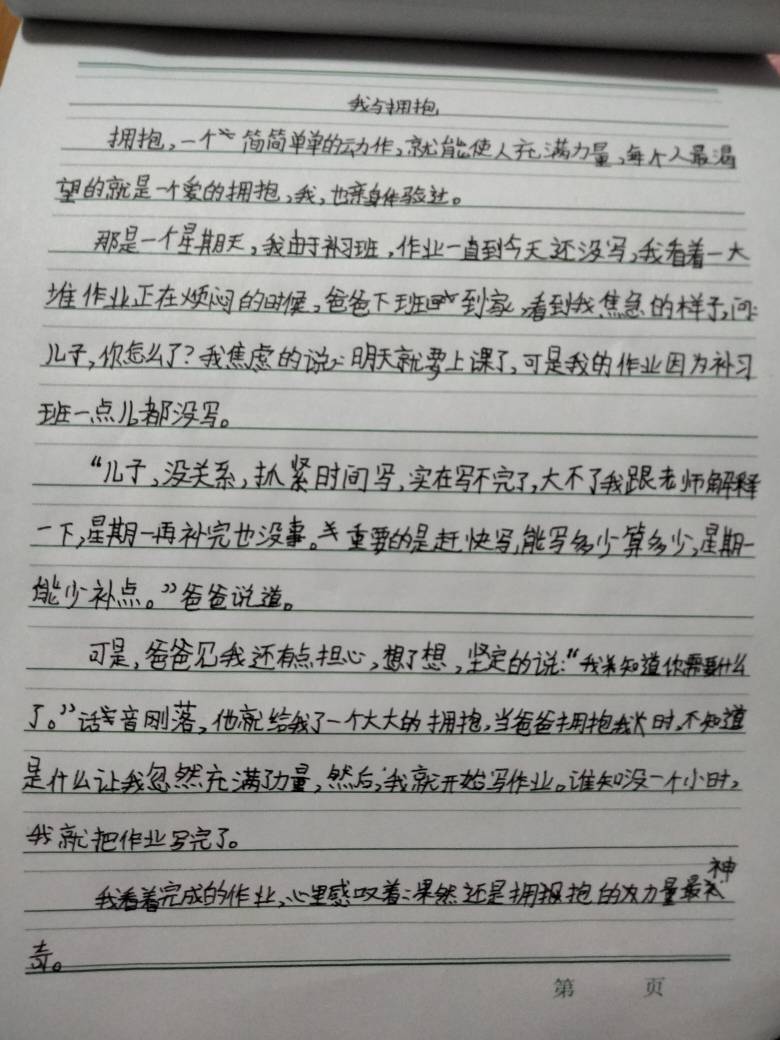 我与拥抱
拥抱,一个简简单单的动作,就能使人充满力量,每个人最渴
望的就是一个爱的拥抱,我,也亲身体验过。
那是一个星期天,我由于补习班,作业一直到今天还没写,我看着一大
堆作业正在烦闷的时候,爸爸下班回到家,看到我焦急的样子,问:
儿子,你怎么了?我焦虑的说:明天就要上课了,可是我的作业因为补习
班一点儿都没写。
“儿子,没关系,抓紧时间写,实在写不完了,大不了我跟老师解释
一下,星期一再补完也没事。重要的是赶快写,能写多少算多少,星期一
能少补点。”爸爸说道。
可是,爸爸见我还有点担心,想了想,坚定的说:“我知道你需要什么
了。”话音刚落,他就给我了一个大大的拥抱,当爸爸拥抱我时,不知道
是什么让我忽然充满了力量,然后,我就开始写作业。谁知没一个小时,
我就把作业写完了。
我看着完成的作业,心里感叹着:果然还是拥抱的力量最神
奇。
第 页